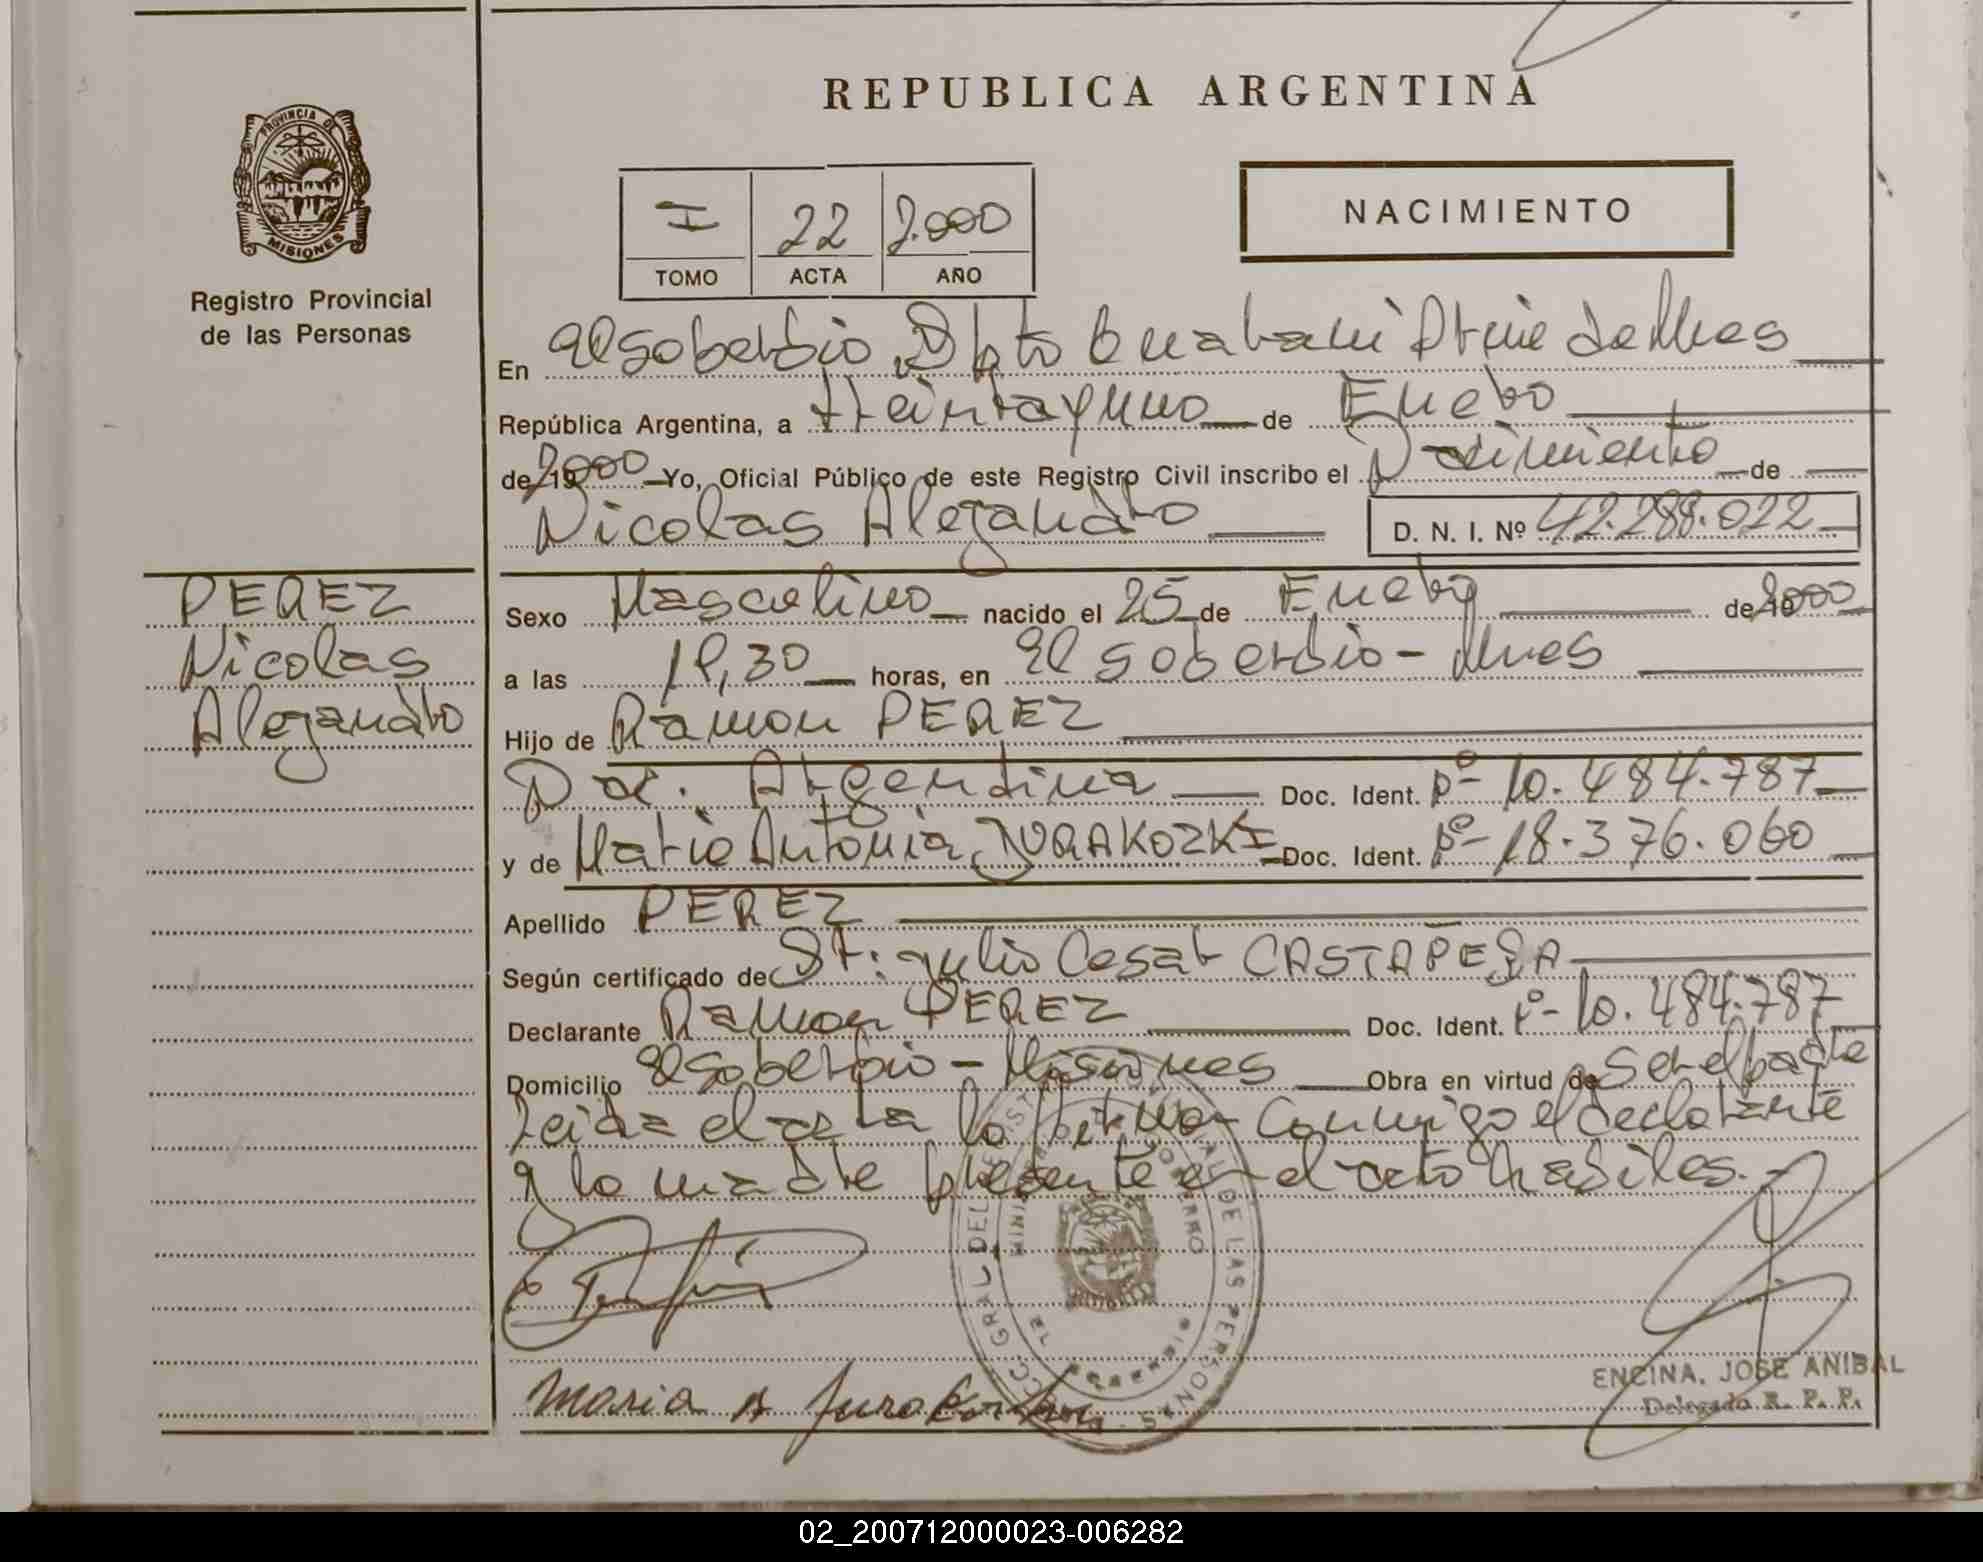 REPUBLICA ARGENTINA
PROVINCIA DE
MISIONES
Registro Provincial
de las Personas
I 22 2.000
TOMO ACTA AÑO
NACIMIENTO
En El Soberbio, Dpto Guarani Pcia de Mnes
República Argentina, a treinta y uno de Enero
de 19 2000 Yo, Oficial Público de este Registro Civil inscribo el Nacimiento de
Nicolas Alejandro D. N. I. Nº 42.288.022
PEREZ
Nicolas
Alejandro
Sexo Masculino nacido el 25 de Enero de 19 2000
a las 19,30 horas, en El Soberbio - Mnes
Hijo de Ramon PEREZ
Nac. Argentina Doc. Ident. Nº- 10.484.787
y de Maria Antonia JURAKOZKI Doc. Ident. Nº- 18.376.060
Apellido PEREZ
Según certificado de Sr. Julio Cesar CASTAÑEDA
Declarante Ramon PEREZ Doc. Ident. Nº- 10.484.787
Domicilio El Soberbio - Misiones Obra en virtud de Ser el padre
Leida el acta la firman conmigo el declarante
y la madre presente en el acto habiles.-
DE LAS PERSONAS
Maria A
ENCINA, JOSE ANIBAL
Delegado R. P. P.
02_200712000023-006282